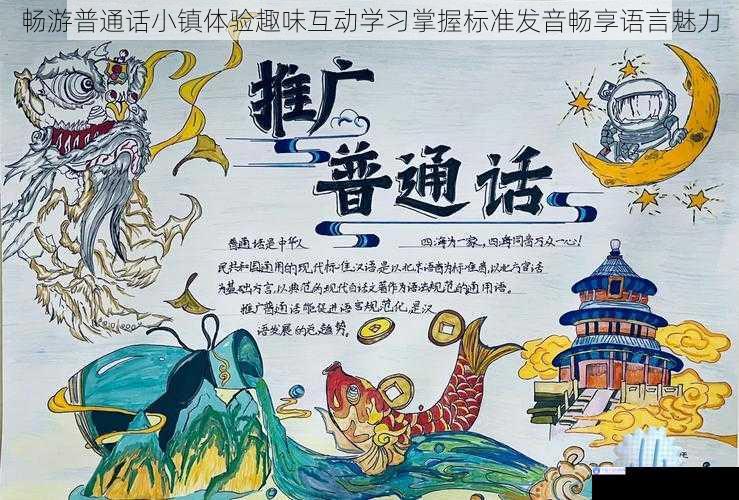 畅游普通话小镇体验趣味互动学习掌握标准发音畅享语言魅力
推广
普通话
普通话是中华人
四海为一家，四海同音万众一心！
民共和国通用的现代标准汉语是以北京语音为标准音，以北方官话
为基础方言，以典范的现代白话文著作为语法规范的通用语。
推广普通话能促进语言规范化，是汉
语发展的总趋势。